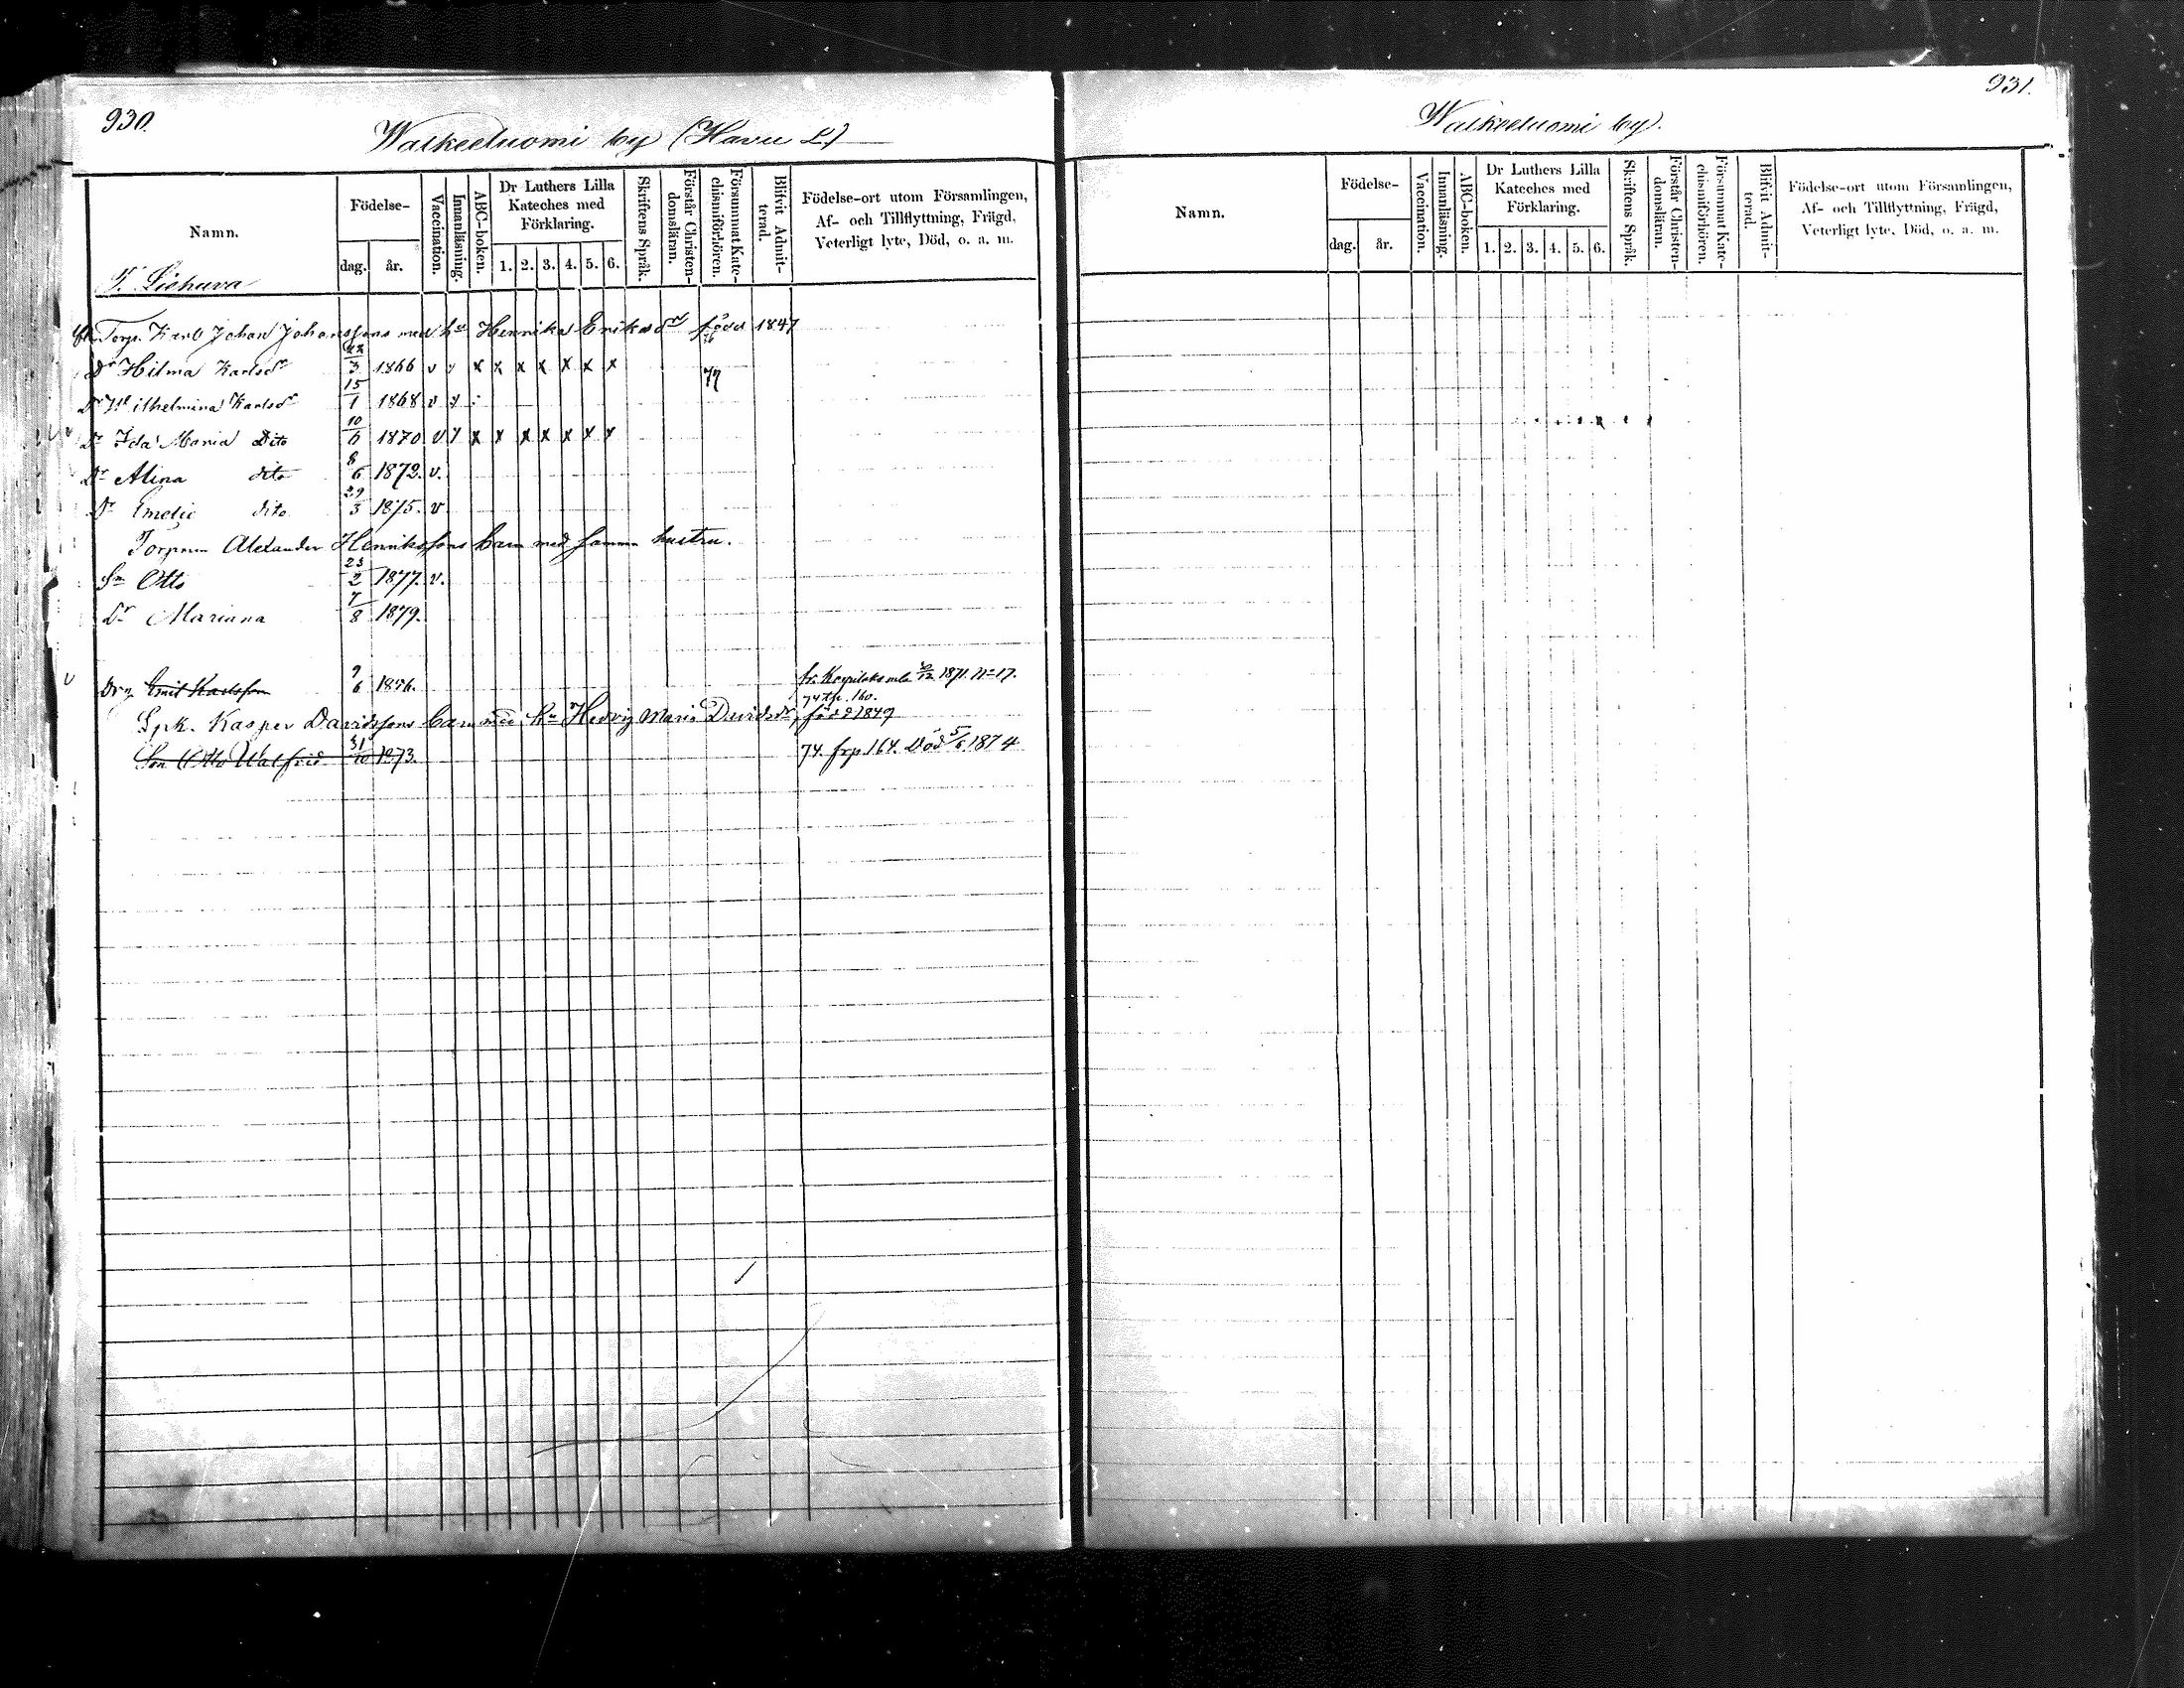 930.
Walkeeluomi by (Havu L.)
Namn.
Födelse-
dag.
år.
Vaccination.
Innanläsning.
ABC-boken.
Dr Luthers Lilla
Kateches med
Förklaring.
1. 2. 3. 4. 5. 6.
Skriftens Språk.
Förstår Christen-
domsläran.
Försummat Kate-
chismiförhören.
Blifvit Admit-
terad.
Födelse-ort utom Församlingen,
Af- och Tillflyttning, Frägd,
Veterligt lyte, Död, o. a. m.
T. Liehuva
Torp. Karl Johan Johanssons med hu Henrika Eriksdr född 1847
Dr Hilma Karlsdr 22/3 1866 v y x x x x x x x
77
Dr Wilhelmina Karlsdr 15/1 1868 v y
Dr Ida Maria Dito 10/6 1870 v y x x x x x x x
Dr Alina dito 8/6 1872. v.
Dr Emelie dito 29/3 1875. v
Torparen Alexander Henrikssons barn med samma hustru.
Sn Otto 23/2 1877. v.
Dr Mariana 7/8 1879.
Drg Emil Karlsson 9/6 1856. 1871. N=17.
74 frp. 160.
Spk. Kasper Davidssons barn med hu Hedvig Maria Davidsdr född 1849
Son Otto Walfrid 31/10 1873. 74. frp. 164. Död 5/6 1874
931.
Walkeeluomi by.
Namn.
Födelse-
dag.
år.
Vaccination.
Innanläsning.
ABC-boken.
Dr Luthers Lilla
Kateches med
Förklaring.
1. 2. 3. 4. 5. 6.
Skriftens Språk.
Förstår Christen-
domsläran.
Försummat Kate-
chismiförhören.
Blifvit Admit-
terad.
Födelse-ort utom Församlingen,
Af- och Tillflyttning, Frägd,
Veterligt lyte, Död, o. a. m.